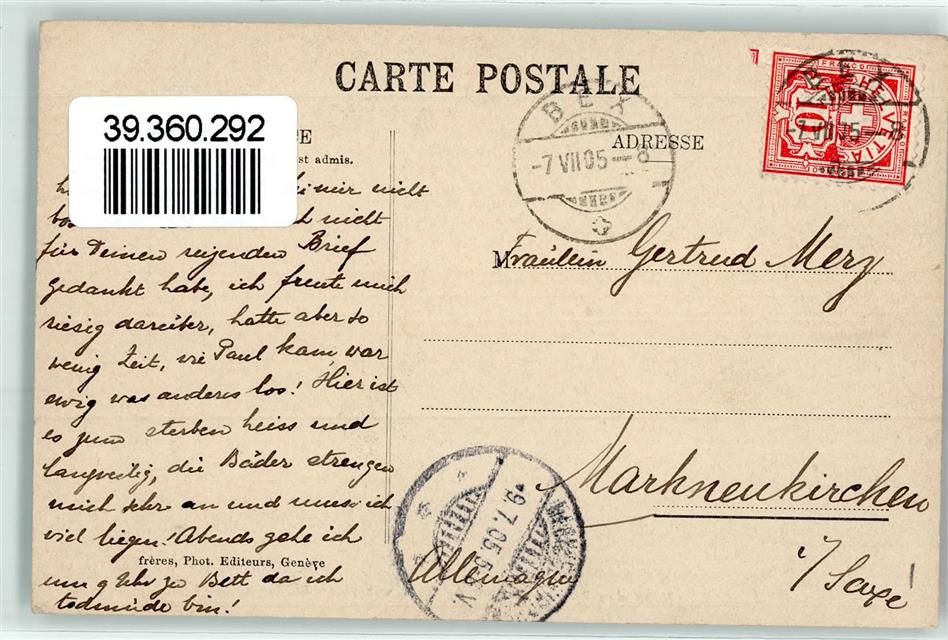 CARTE POSTALE
39.360.292
E
ADRESSE
st admis.
BEX
-7.VII.05-8
BEX
-7.VII.05-8
FRANCO
HELVETIA
10
mir nicht
nicht
für Deinen reizenden Brief
gedankt habe, ich freute mich
riesig darüber, hatte aber so
wenig Zeit, wie Paul kam, war
ewig was anderes los! Hier ist
es zum sterben heiss und
langweilig, die Bäder strengen
mich sehr an und muss ich
viel liegen! Abends gehe ich
um 9 Uhr zu Bett da ich
todmüde bin!
frères, Phot. Editeurs, Genève
M
Fräulein Gertrud Merz
Markneukirchen
i/Saxe
Allemagne
9.7.05.